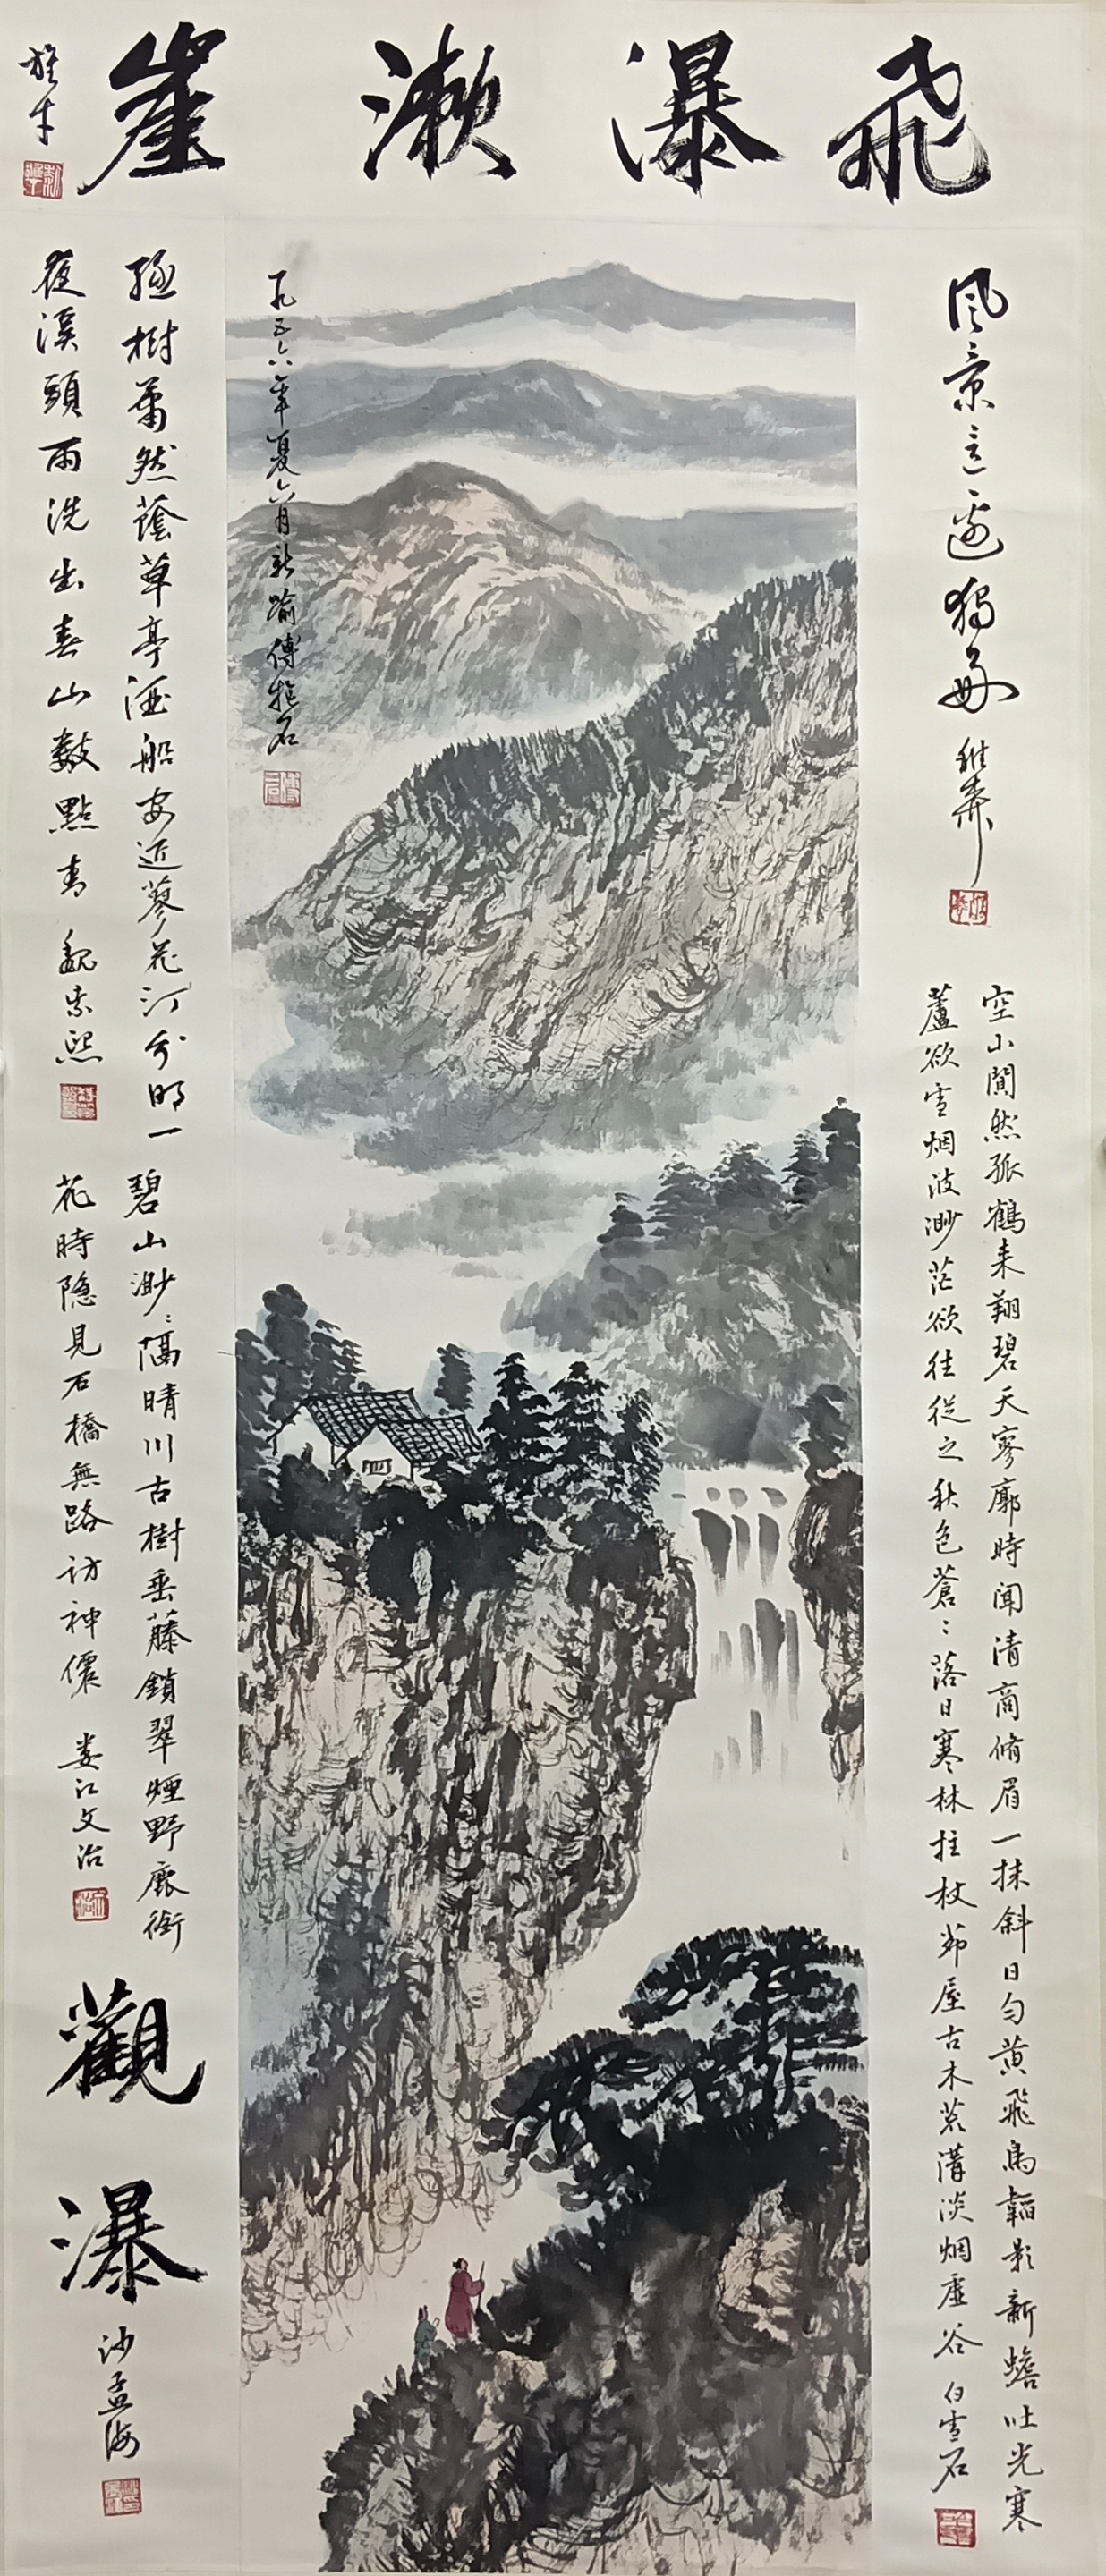 飛瀑漱崖
風景這邊獨好
空山闃然孤鶴来翔碧天寥廓時聞清商脩眉一抹斜日勻黄飛鳥韜影新蟾吐光寒
蘆欲雪烟波渺茫欲往從之秋色蒼〻落日寒林拄杖茆屋古木荒溝淡烟虛谷 白雪石
一九五六年夏六月新喻傅抱石
樹蕭然蔭草亭酒船安近蓼花汀分明一
夜溪頭雨洗出春山數點青 魏紫熙
碧山渺〻隔晴川古樹垂藤鎖翠煙野鹿銜
花時隱見石橋無路訪神僊 婁江文治
觀瀑
沙孟海